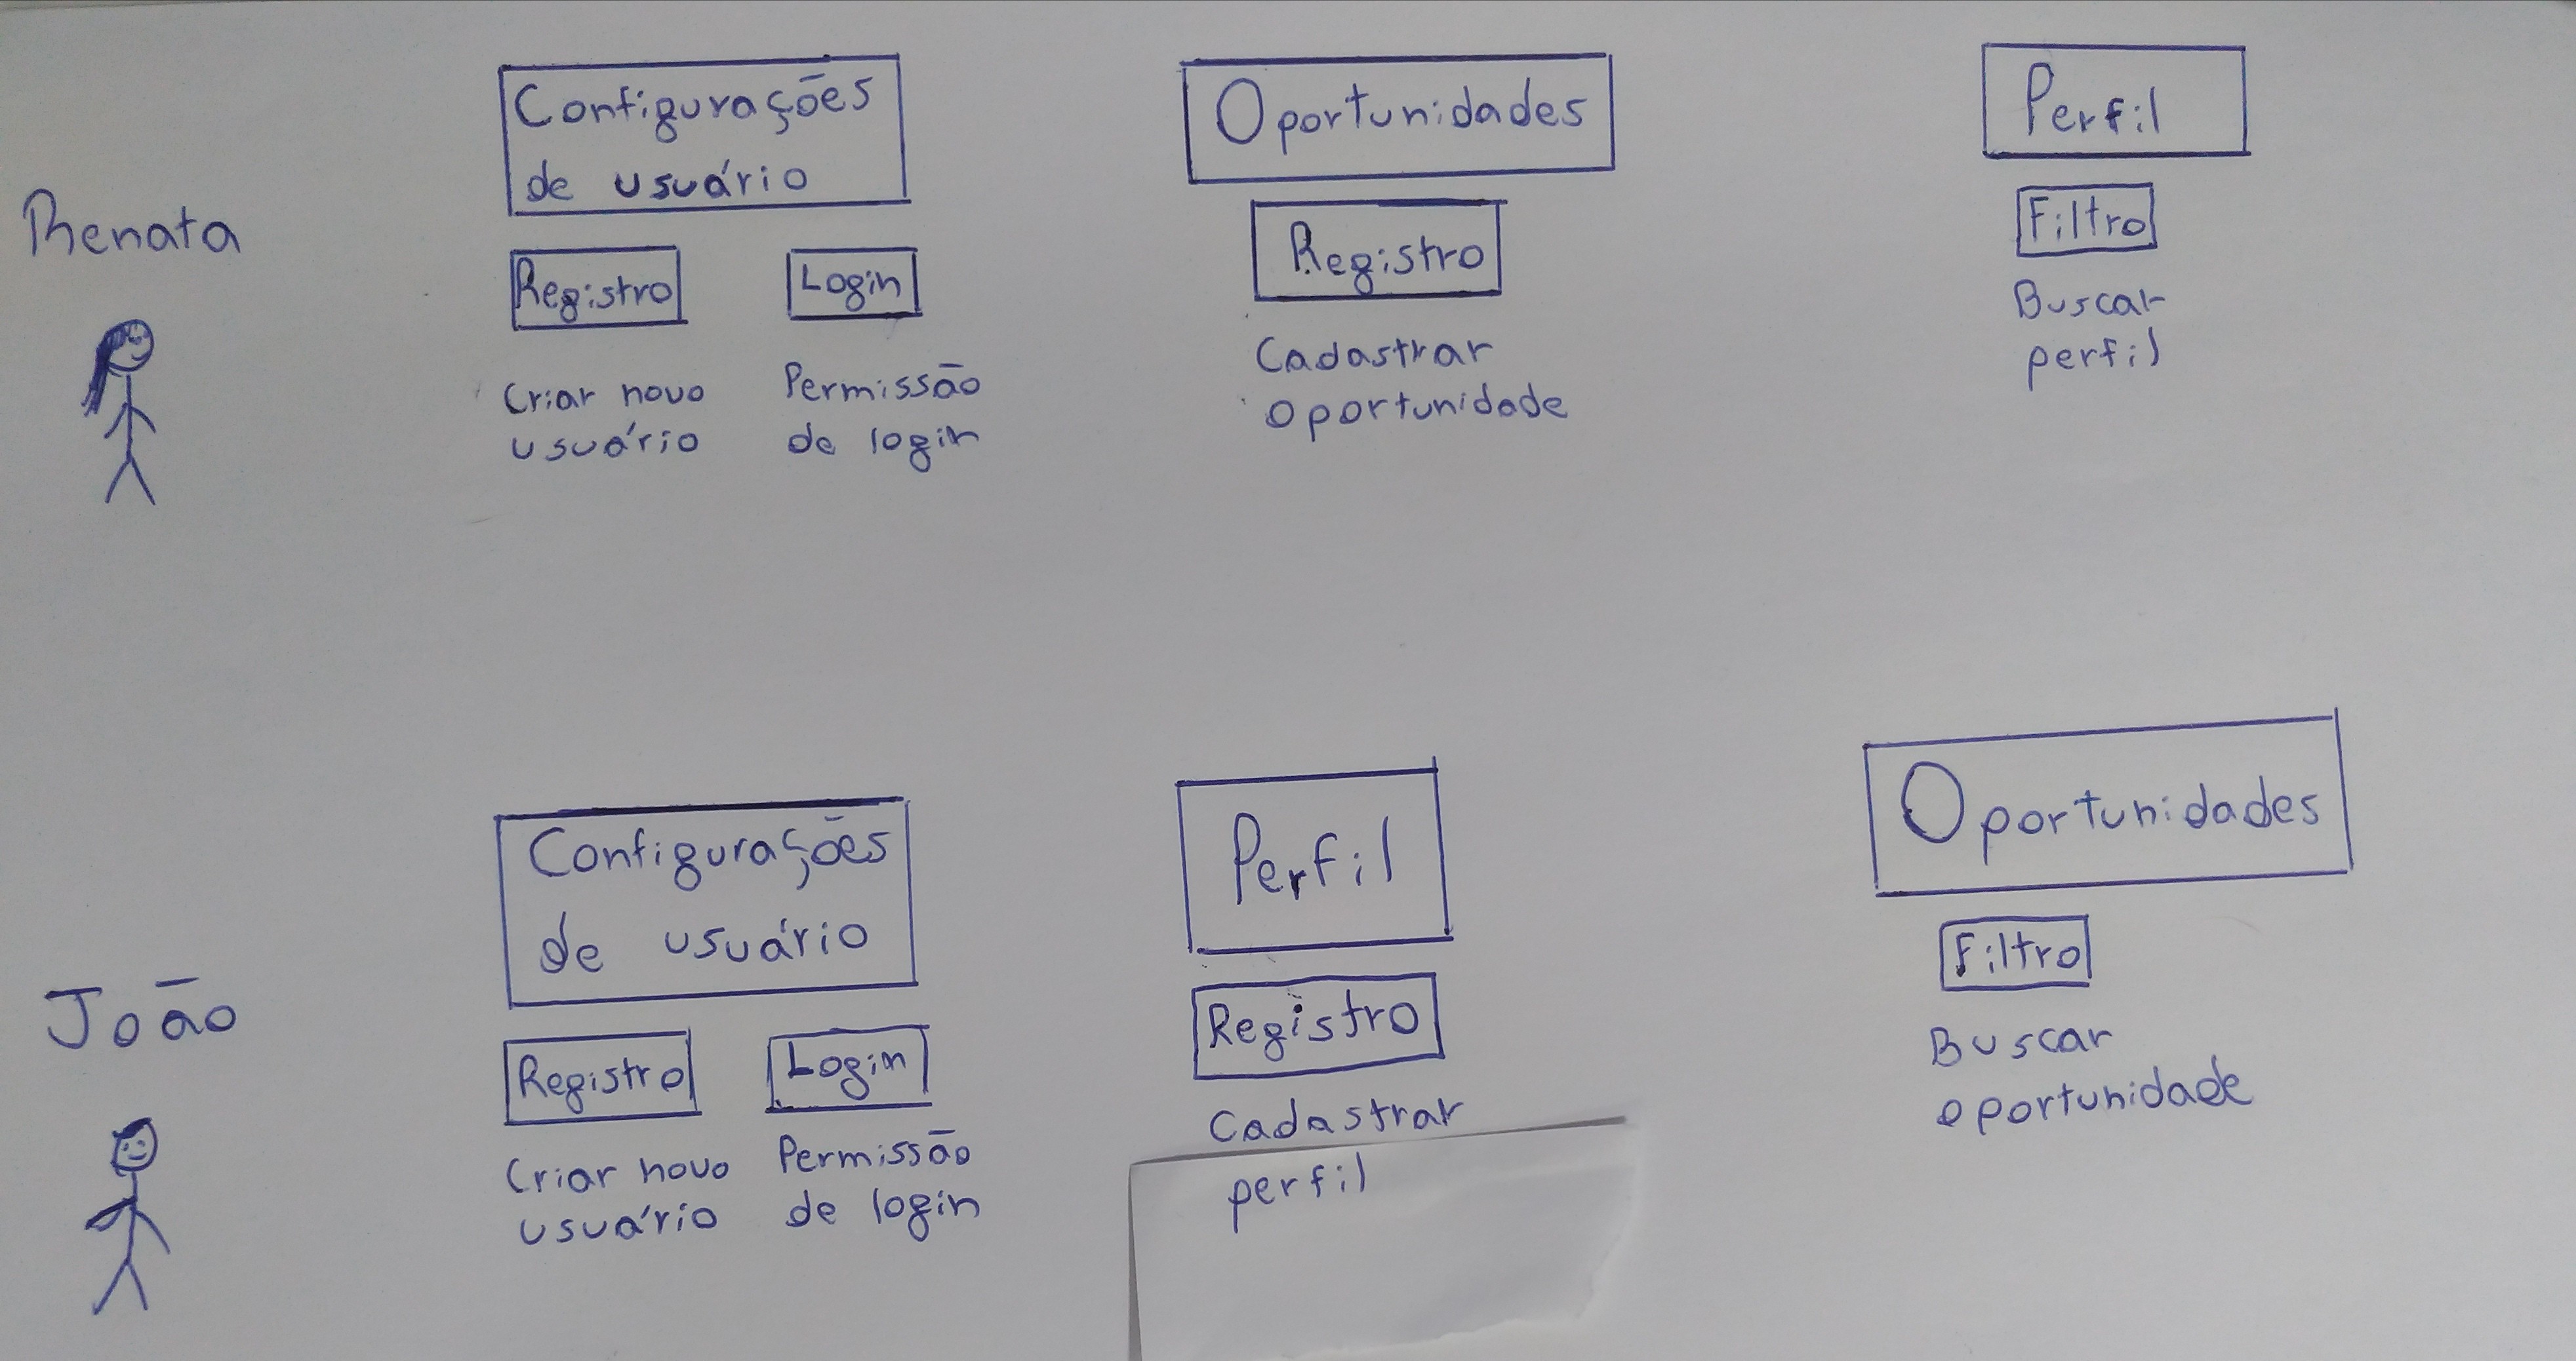 Renata
Configurações
de usuário
Registro
Login
Criar novo
usuário
Permissão
de login
Oportunidades
Registro
Cadastrar
oportunidade
Perfil
Filtro
Buscar
perfil
João
Configurações
de usuário
Registro
Login
Criar novo
usuário
Permissão
de login
Perfil
Registro
Cadastrar
perfil
Oportunidades
Filtro
Buscar
oportunidade